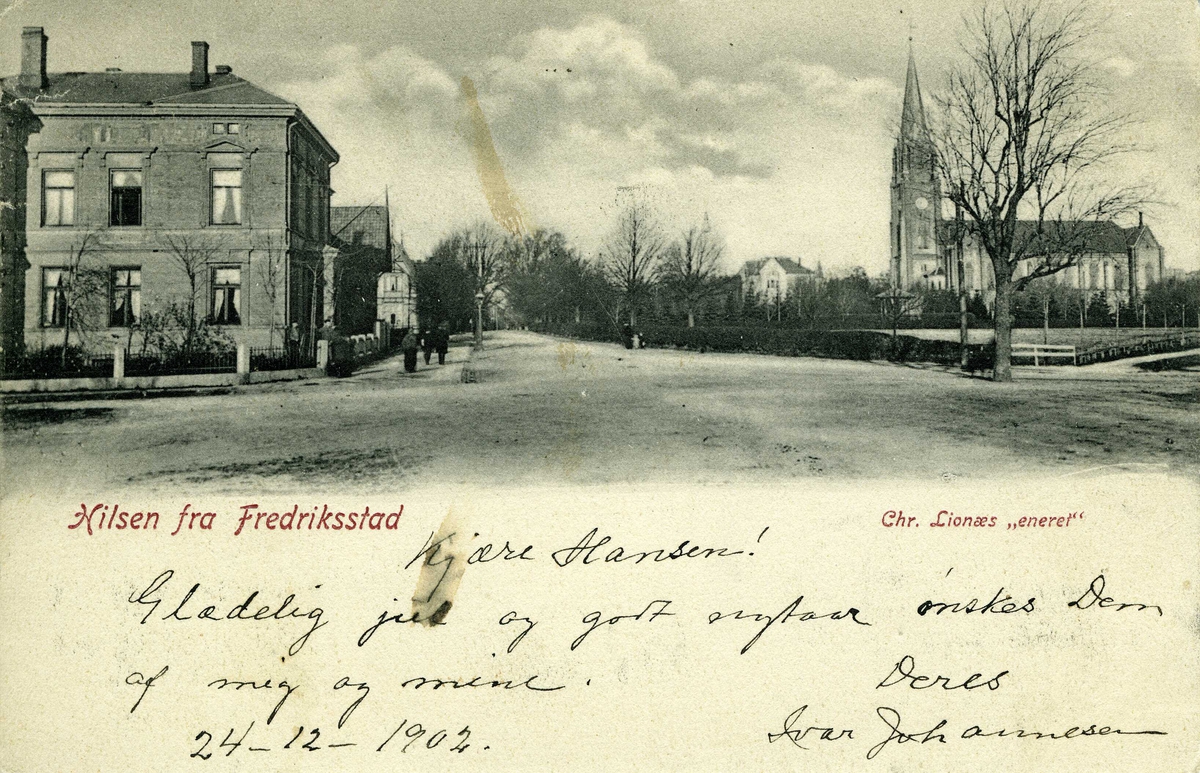 Hilsen fra Fredriksstad
Chr. Lionæs „eneret“
Kjære Hansen!
Glædelig jul og godt nytaar ønskes Dem
af mig og mine.
Deres
24-12-1902.
Ivar Johannesen